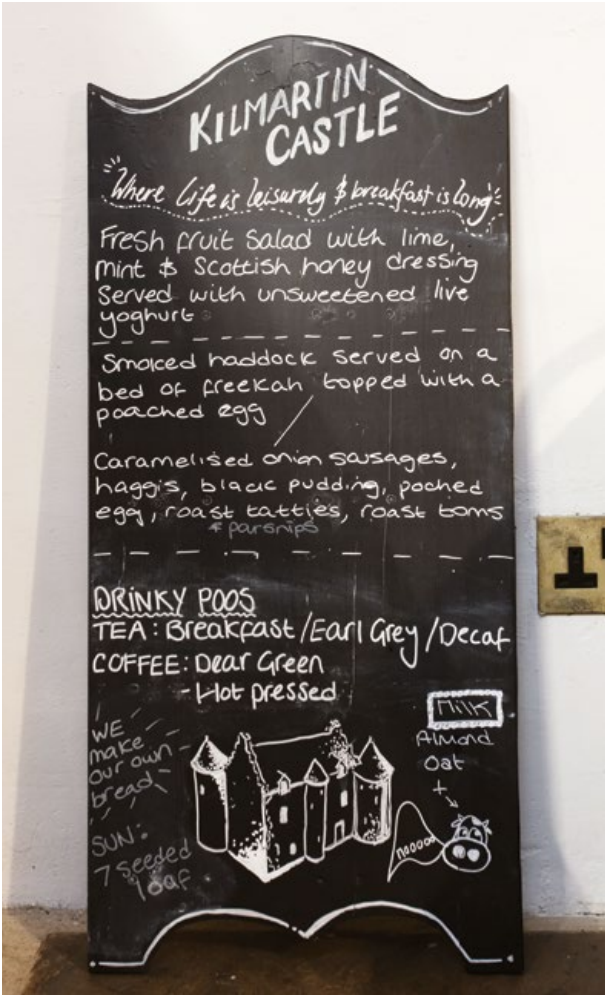 KILMARTIN
CASTLE
Where Life is leisurely & breakfast is long
Fresh fruit Salad with lime,
mint & Scottish honey dressing
Served with unsweetened live
yoghurt
Smoked haddock served on a
bed of freekah topped with a
poached egg
Caramelised onion sausages,
haggis, black pudding, poched
egg, roast tatties, roast toms
& parsnips
DRINKY POOS
TEA: Breakfast/Earl Grey/Decaf
COFFEE: Dear Green
- Hot pressed
MILK
Almond
Oat
+
noooooo
WE
make
our own
bread
SUN:
7 seeded
loaf